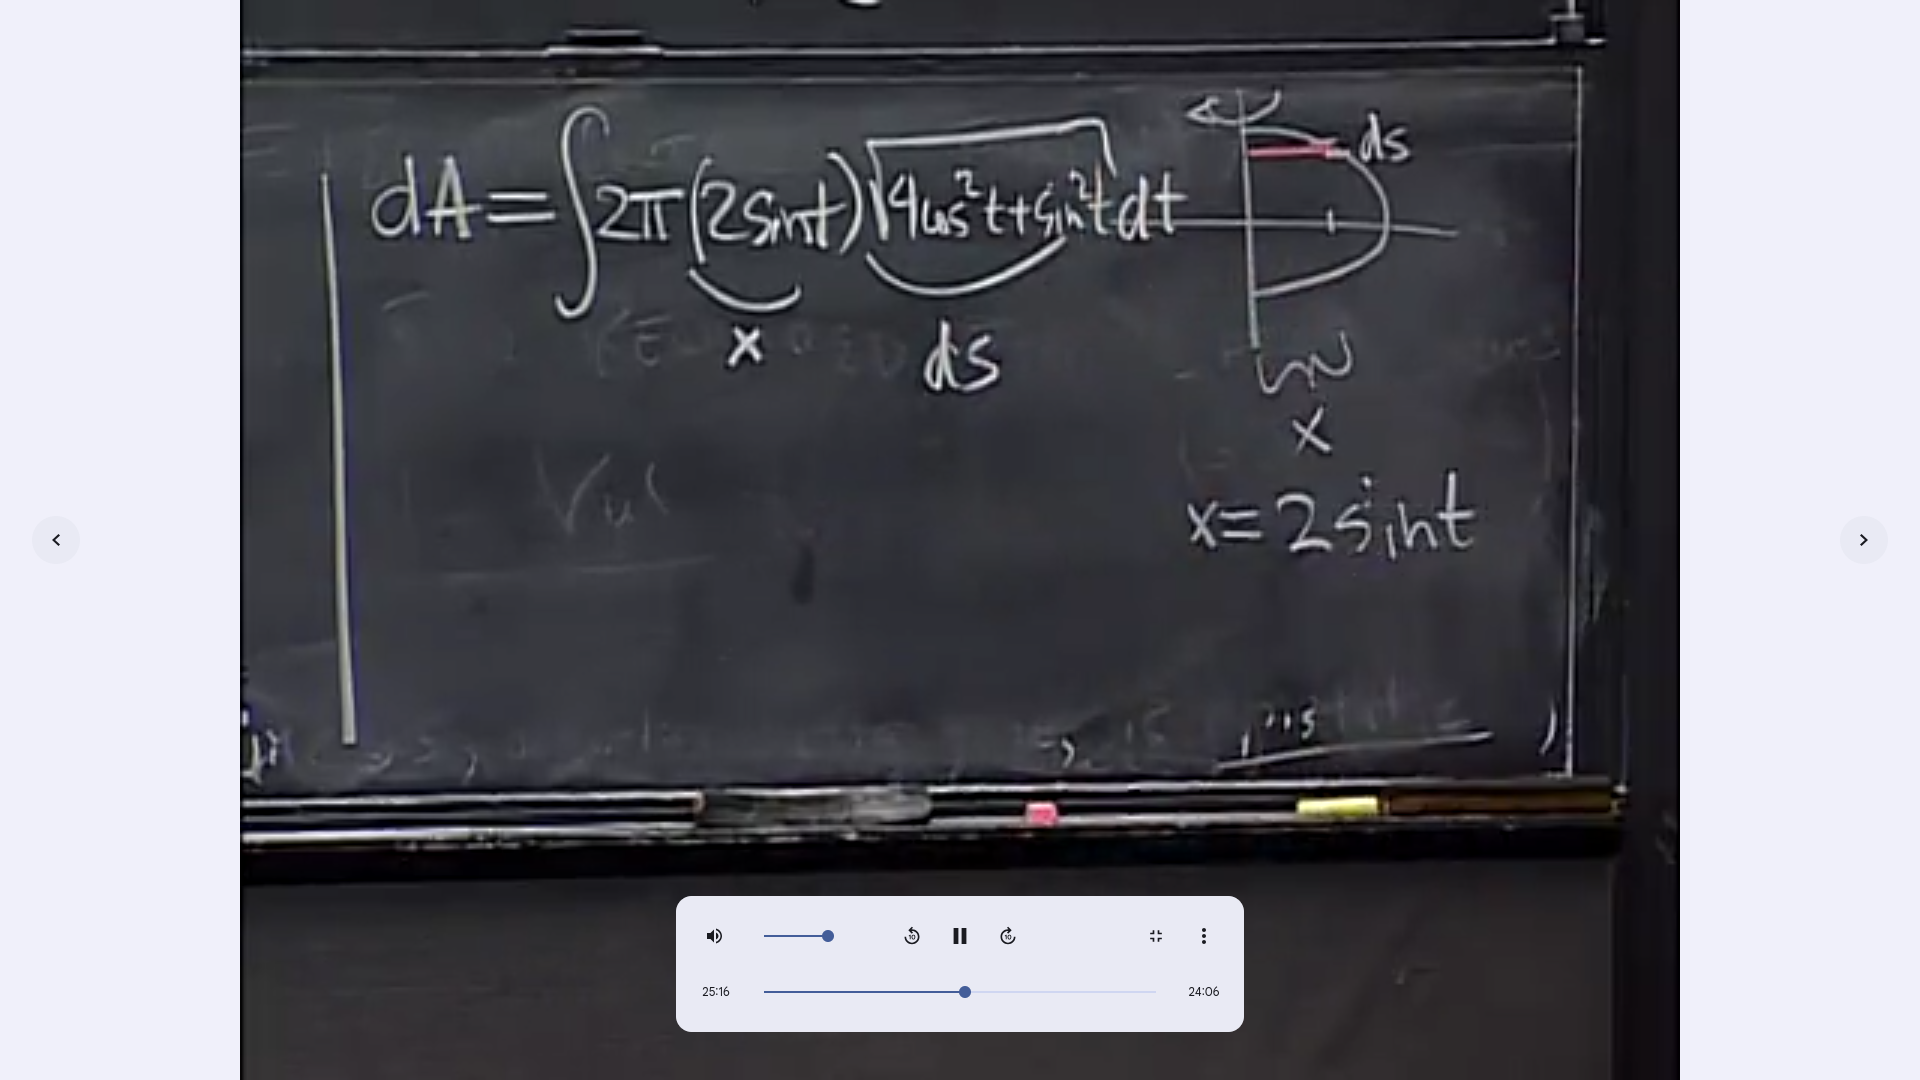 dA = ∫ 2π (2sint) √4cos²t + sin²t dt
x
ds
ds
x
x = 2sint
10
10
25:16
24:06